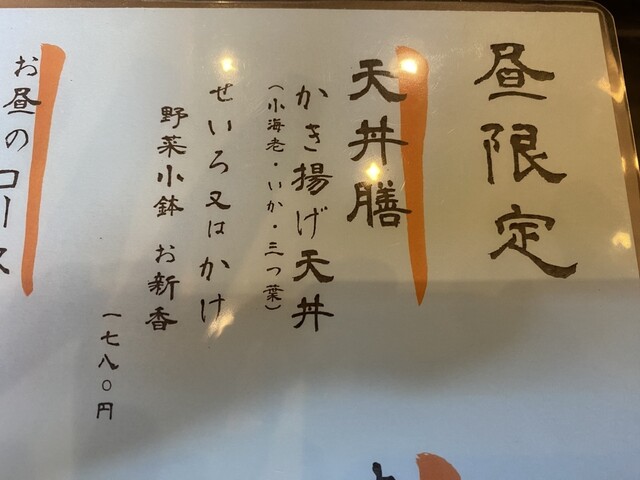 昼限定
天丼膳
かき揚げ天丼
(小海老・いか・三つ葉)
せいろ又はかけ
野菜小鉢 お新香
一七八〇円
お昼のコース